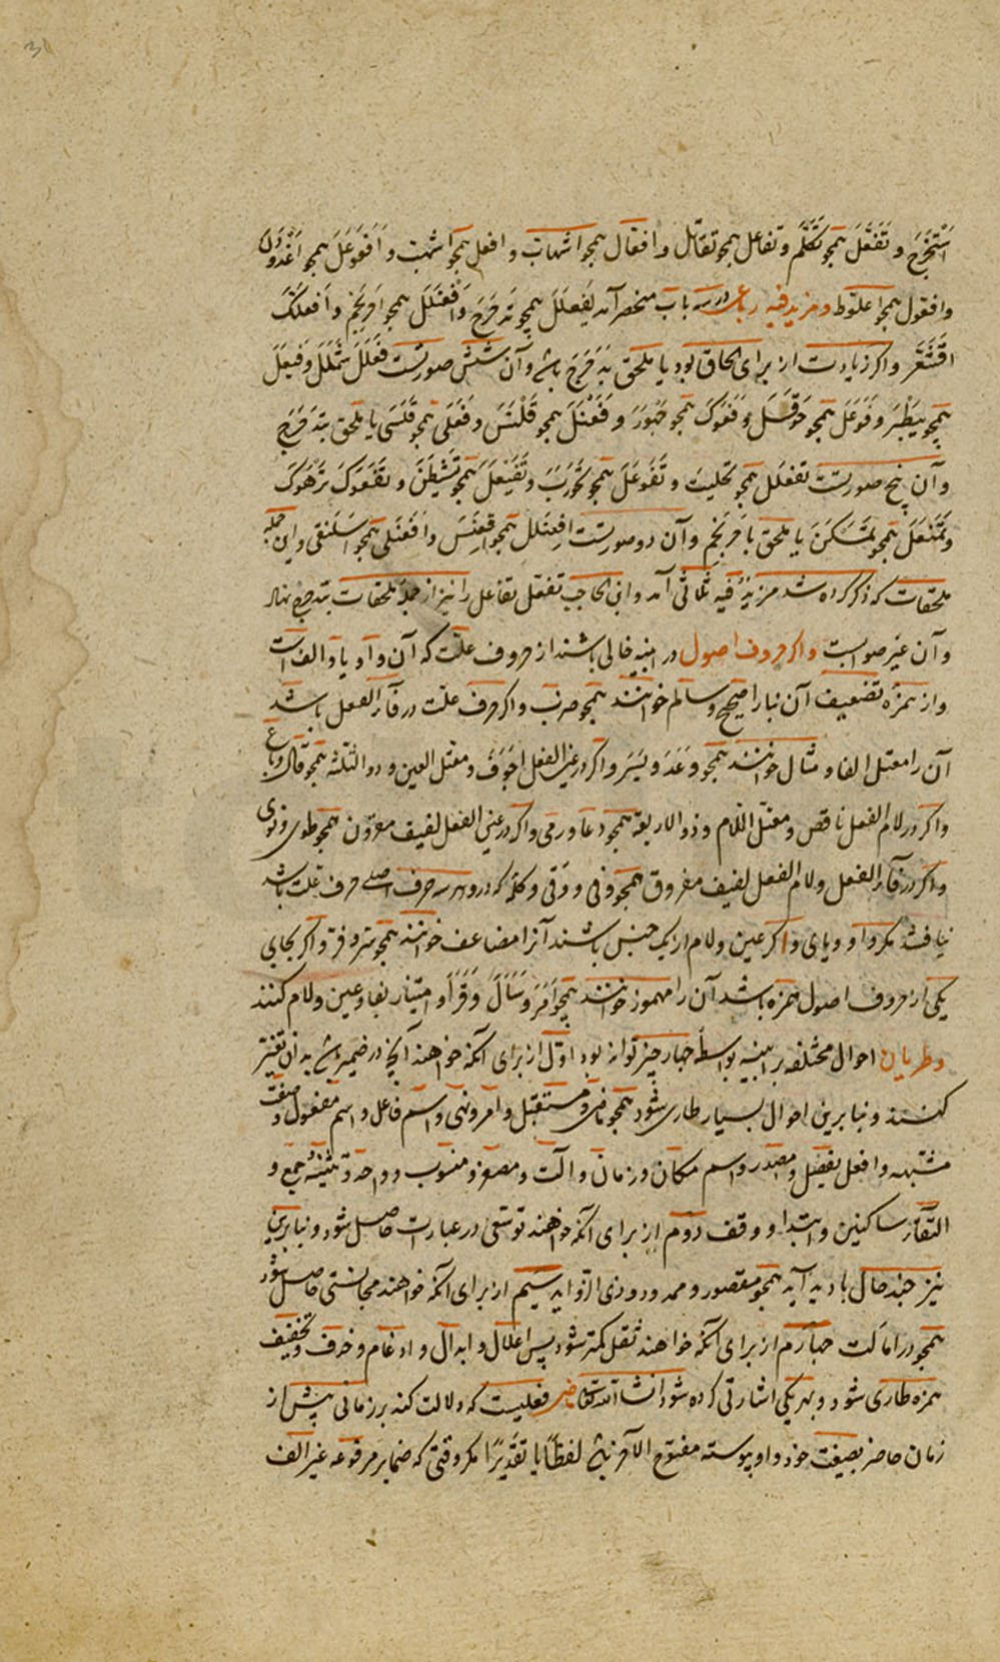 استخرج و تفعّل همچو تکلّم و تفاعل همچو تقاتل و افعال همچو اشهابّ و افعل همچو اشهبّ و افعوعل همچو اغدودن
و افعوّل همچو اعلوّط و مزید فیه رباعی در سه باب منحصر آمد تفعلل همچو تدحرج و افعنلل همچو احرنجم و افعللّ
اقشعرّ و اکر زیادت از برای الحاق بود یا ملحق بدحرج باشد و آن شش صورتست فعلل شملل و فیعل
همچو بیطر و فوعل همچو حوقل و فعول همچو جهور و فعنل همچو قلنس و فعلی همچو قلسی یا ملحق بتدحرج
و آن پنج صورتست تفعلل همچو تجلبب و تفوعل همچو تجورب و تفیعل همچو تشیطن و تفعول ترهوک
و تمفعل همچو تمسکن یا ملحق باحرنجم و آن دو صورتست افعنلل همچو اقعنسس و افعنلی همچو اسلنقی و این جمله
ملحقات که ذکر کرده شد مزید فیه ثلاثی آمد و ابن الحاجب تفعل تفاعل را نیز از جمله ملحقات بتدحرج نهاد
و آن غیر صوابست و اکر حروف اصول در ابنیه خالی باشند از حروف علت که آن واو و یا و الف است
و از همزه و تضعیف آن بنا را صحیح و سالم خوانند همچو ضرب و اکر حرف علت در فآء الفعل باشد
آن را معتل الفا و مثال خوانند همچو وعد و یسر و اکر در عین الفعل اجوف و معتل العین و ذو الثلثة همچو قال و باع
و اکر در لام الفعل ناقص و معتل اللام و ذو الاربعة همچو دعا و رمی و اکر در عین الفعل لفیف مقرون همچو طوی و نوی
و اکر در فآء الفعل و لام الفعل لفیف مفروق همچو وفی و وقی و کلمه که درو هر سه حرف اصلی حرف علت باشد
نیافتند مکر واو و یای و اکر عین و لام از یک جنس باشند آنرا مضاعف خوانند همچو سرّ و فرّ و اکر بجای
یکی از حروف اصول همزه باشد آن را مهموز خوانند همچو امر و سأل و قرأ و امتیاز بفا و عین و لام کنند
و طریان احوال مختلفه بر ابنیه بواسطه چهار چیز تواند بود اوّل از برای آنکه خواهند آنچه در ضمیر باشد به آن تعبیر
کنند و بنا برین احوال بسیار طاری شود همچو ماضی و مستقبل و امر و نهی و اسم فاعل و اسم مفعول و صفت
مشبهه و افعل تفضیل و مصدر و اسم مکان و زمان و الت و مصغر و منسوب و واحد و تثنیه و جمع و
التقاء ساکنین و ابتدا و وقف دوم از برای آنکه خواهند توسّعی در عبارت حاصل شود و بنا برین
نیز چند حال بادید آید همچو مقصور و ممدود و ذی الزواید سیم از برای آنکه خواهند مجانستی حاصل شود
همچو در امالت چهارم از برای آنکه خواهند ثقل کمتر شود پس اعلال و ابدال و ادغام و حذف و تخفیف
همزه طاری شود و بهر یکی اشارتی کرده شود انشاء الله تعالی ماضی فعلیست که دلالت کند بر زمانی پیش از
زمان حاضر بصیغت خود و او پیوسته مفتوح الآخر باشد لفظاً یا تقدیرًا مکر وقتی که ضمایر مرفوعه غیر الف